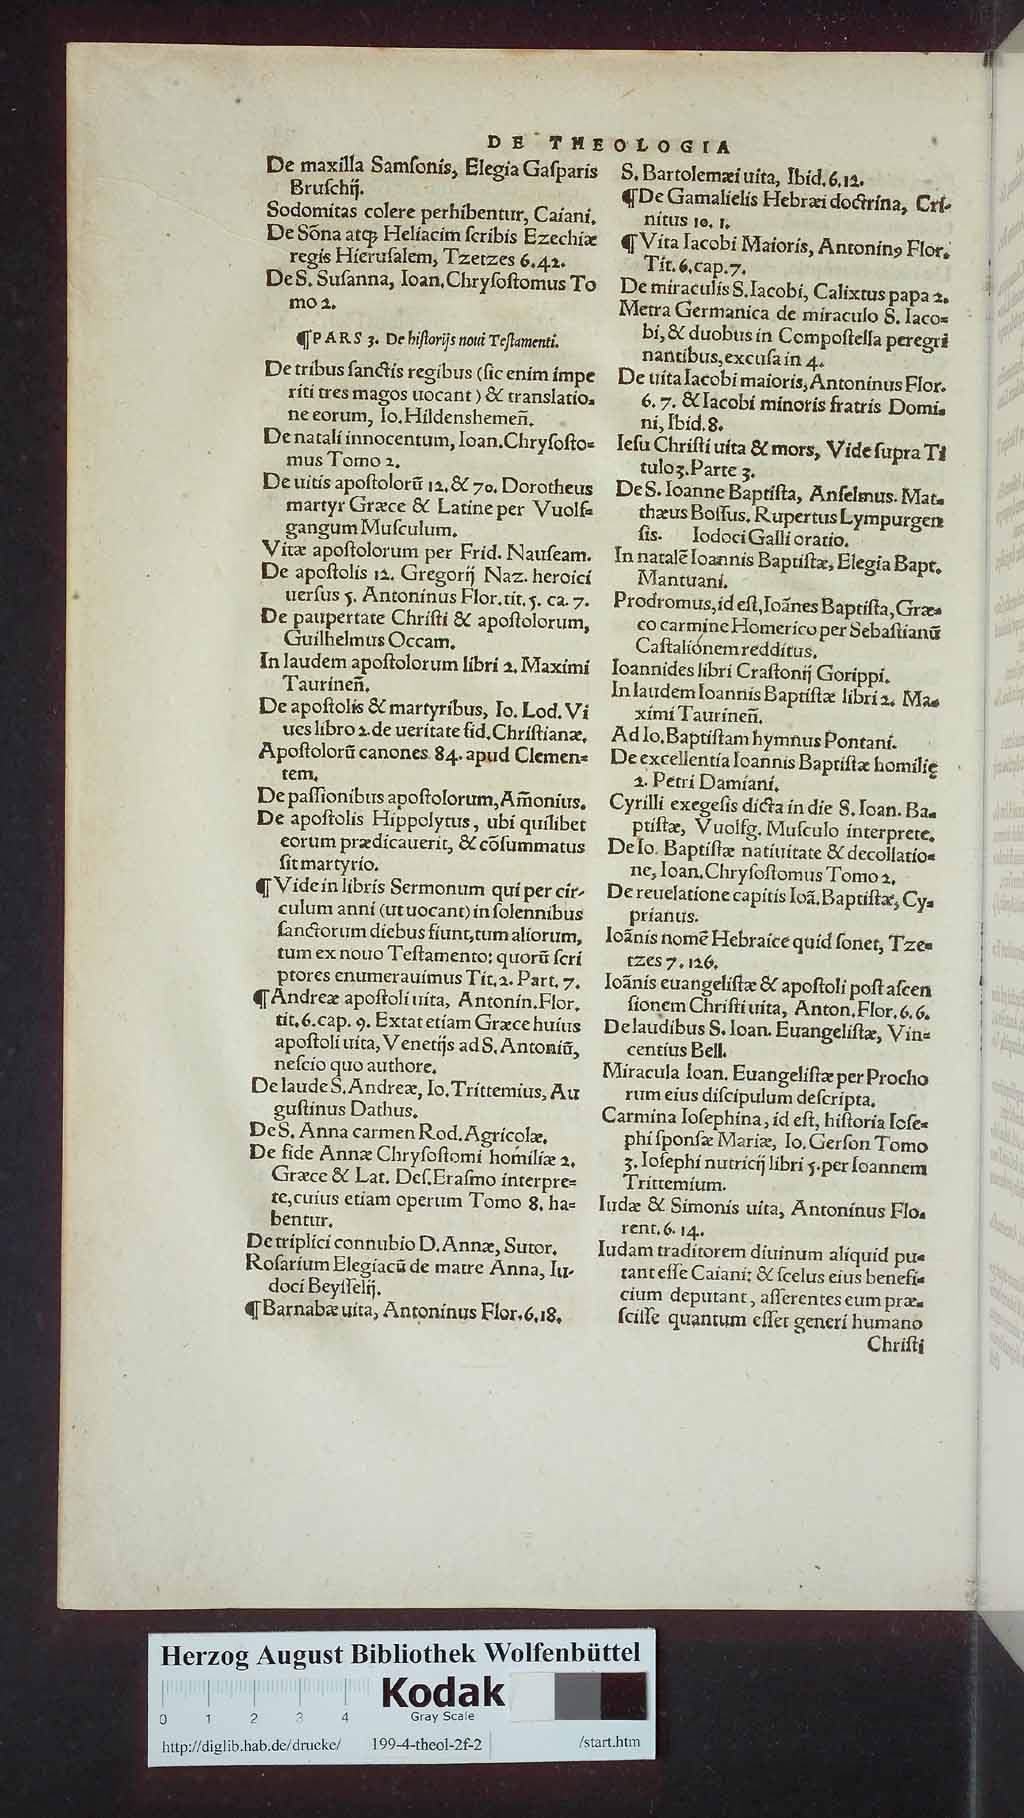 DE THEOLOGIA
De maxilla Samſonis, Elegia Gaſparis
Bruſchij.
Sodomitas colere perhibentur, Caiani.
De Sõna atq; Heliacim ſcribis Ezechiæ
regis Hieruſalem, Tzetzes 6.42.
De S. Suſanna, Ioan. Chryſoſtomus To
mo 2.
¶PARS 3. De hiſtorijs noui Teſtamenti.
De tribus ſanctis regibus (ſic enim impe
riti tres magos uocant) & translatio-
ne eorum, Io. Hildenshemeñ.
De natali innocentum, Ioan. Chryſoſto=
mus Tomo 2.
De uitis apoſtolorũ 12. & 70. Dorotheus
martyr Græce & Latine per Vuolf=
gangum Muſculum.
Vitæ apoſtolorum per Frid. Nauſeam.
De apoſtolis 12. Gregorij Naz. heroici
uerſus 5. Antoninus Flor. tit. 5. ca. 7.
De paupertate Chriſti & apoſtolorum,
Guilhelmus Occam.
In laudem apoſtolorum libri 2. Maximi
Taurineñ.
De apoſtolis & martyribus, Io. Lod. Vi
ues libro 2. de ueritate fid. Chriſtianæ.
Apoſtolorũ canones 84. apud Clemen=
tem.
De paſſionibus apoſtolorum, Am̃onius.
De apoſtolis Hippolytus, ubi quilibet
eorum prædicauerit, & cõſummatus
ſit martyrio.
¶Vide in libris Sermonum qui per cir-
culum anni (ut uocant) in ſolennibus
ſanctorum diebus fiunt, tum aliorum,
tum ex nouo Teſtamento: quorũ ſcri
ptores enumerauimus Tit. 2. Part. 7.
¶Andreæ apoſtoli uita, Antonin. Flor.
tit. 6. cap. 9. Extat etiam Græce huius
apoſtoli uita, Venetijs ad S. Antoniũ,
neſcio quo authore.
De laude S. Andreæ, Io. Trittemius, Au
guſtinus Dathus.
De S. Anna carmen Rod. Agricolæ.
De fide Annæ Chryſoſtomi homiliæ 2.
Græce & Lat. Deſ. Eraſmo interpre=
te, cuius etiam operum Tomo 8. ha=
bentur.
De triplici connubio D. Annæ, Sutor.
Roſarium Elegiacũ de matre Anna, Iu-
doci Beyſſelij.
¶Barnabæ uita, Antoninus Flor. 6.18.
S. Bartolemæi uita, Ibid. 6.12.
¶De Gamalielis Hebræi doctrina, Cri-
nitus 10. 1.
¶Vita Iacobi Maioris, Antoninꝰ Flor.
Tit. 6. cap. 7.
De miraculis S. Iacobi, Calixtus papa 2.
Metra Germanica de miraculo S. Iaco=
bi, & duobus in Compoſtella peregri
nantibus, excuſa in 4.
De uita Iacobi maioris, Antoninus Flor.
6. 7. & Iacobi minoris fratris Domi-
ni, Ibid. 8.
Ieſu Chriſti uita & mors, Vide ſupra Ti
tulo 3. Parte 3.
De S. Ioanne Baptiſta, Anſelmus. Mat-
thæus Boſſus. Rupertus Lympurgen
ſis. Iodoci Galli oratio.
In natalẽ Ioannis Baptiſtæ, Elegia Bapt.
Mantuani.
Prodromus, id eſt, Ioãnes Baptiſta, Græ-
co carmine Homerico per Sebaſtianũ
Caſtalionem redditus.
Ioannides libri Craſtonij Gorippi.
In laudem Ioannis Baptiſtæ libri 2. Ma-
ximi Taurineñ.
Ad Io. Baptiſtam hymnus Pontani.
De excellentia Ioannis Baptiſtæ homilię
2. Petri Damiani.
Cyrilli exegeſis dicta in die S. Ioan. Ba-
ptiſtæ, Vuolfg. Muſculo interprete.
De Io. Baptiſtæ natiuitate & decollatio=
ne, Ioan. Chryſoſtomus Tomo 2.
De reuelatione capitis Ioã. Baptiſtæ, Cy-
prianus.
Ioãnis nomẽ Hebraice quid ſonet, Tze=
tzes 7. 126.
Ioãnis euangeliſtæ & apoſtoli poſt aſcen
ſionem Chriſti uita, Anton. Flor. 6.6.
De laudibus S. Ioan. Euangeliſtæ, Vin=
centius Bell.
Miracula Ioan. Euangeliſtæ per Procho
rum eius diſcipulum deſcripta.
Carmina Ioſephina, id eſt, hiſtoria Ioſe=
phi ſponſæ Mariæ, Io. Gerſon Tomo
3. Ioſephi nutricij libri 5. per Ioannem
Trittemium.
Iudæ & Simonis uita, Antoninus Flo-
rent. 6. 14.
Iudam traditorem diuinum aliquid pu=
tant eſſe Caiani: & ſcelus eius benefi=
cium deputant, aſſerentes eum præ-
ſciſſe quantum eſſet generi humano
Chriſti
Herzog August Bibliothek Wolfenbüttel
Kodak
Gray Scale
0 1 2 3 4
http://diglib.hab.de/drucke/ 199-4-theol-2f-2 /start.htm